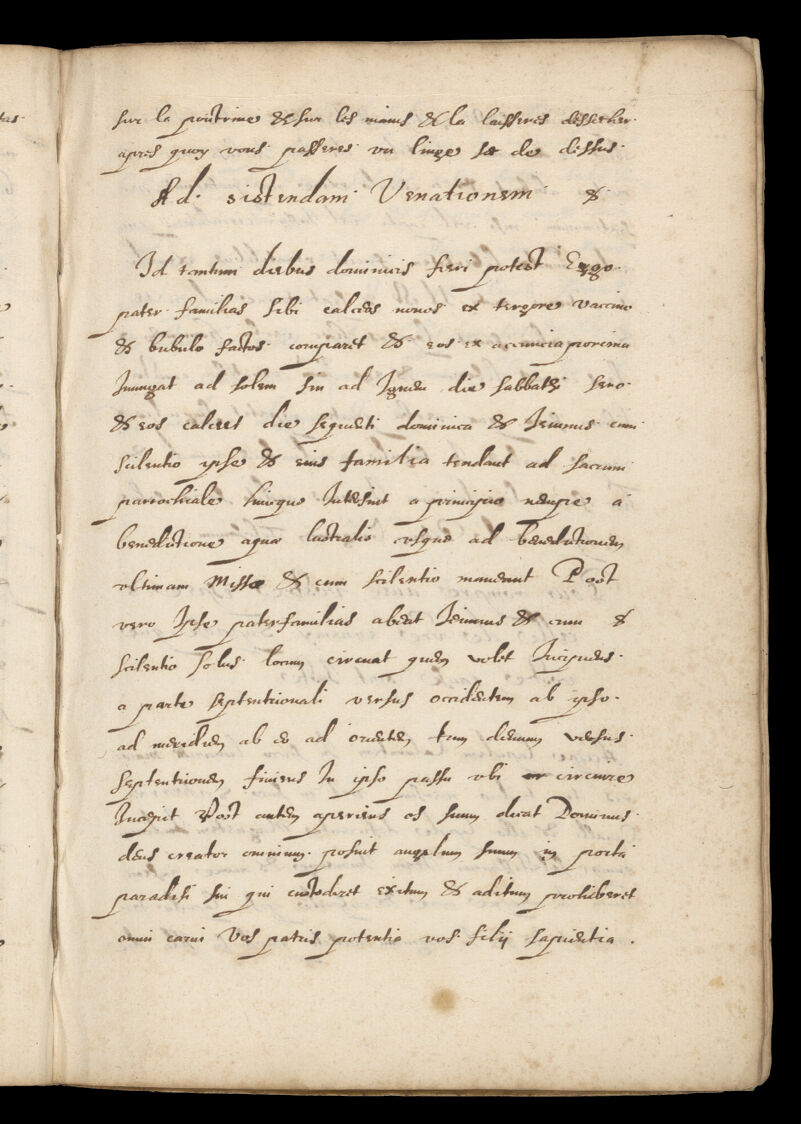 sur la poictrine & sur les mains & la laisseres dessecher
apres quoy vous passeres un linge sec de dessus.
Ad sistendam Venationem &
Id tantum diebus dominicis fieri potest Ergo
pater familias sibi calceos novos ex tergore vaccino
& bubulo factos comparet & eos ex axuncia porcina
Inungat ad solem sin ad Ignem die sabbathi sero
& eos calceet die sequenti dominica & Ieiunus cum
scilentio ipse & eius familia tendant ad sacrum
parrochiale hincque Intersint a principio nempe a
benedictione aquæ lustralis usque ad benedictionem
ultimam Missæ & cum scilentio maneant Post
vero Ipse paterfamilias abeat Ieiunus & cum &
scilentio solus locum circuat quem volet Incipiens
a parte septentrionali versus occidentem ab ipso
ad meridiem ab eo ad orientem tum demum versus
septentrionem finiens In ipso passu ubi circuire
Incepit Post autem aperiens os suum dicat Dominus
deus creator omnium posuit angelum suum in porta
paradisi sui qui custodiret exitum & aditum prohiberet
omni carni Vos patris potentia vos filij sapientia.
tas